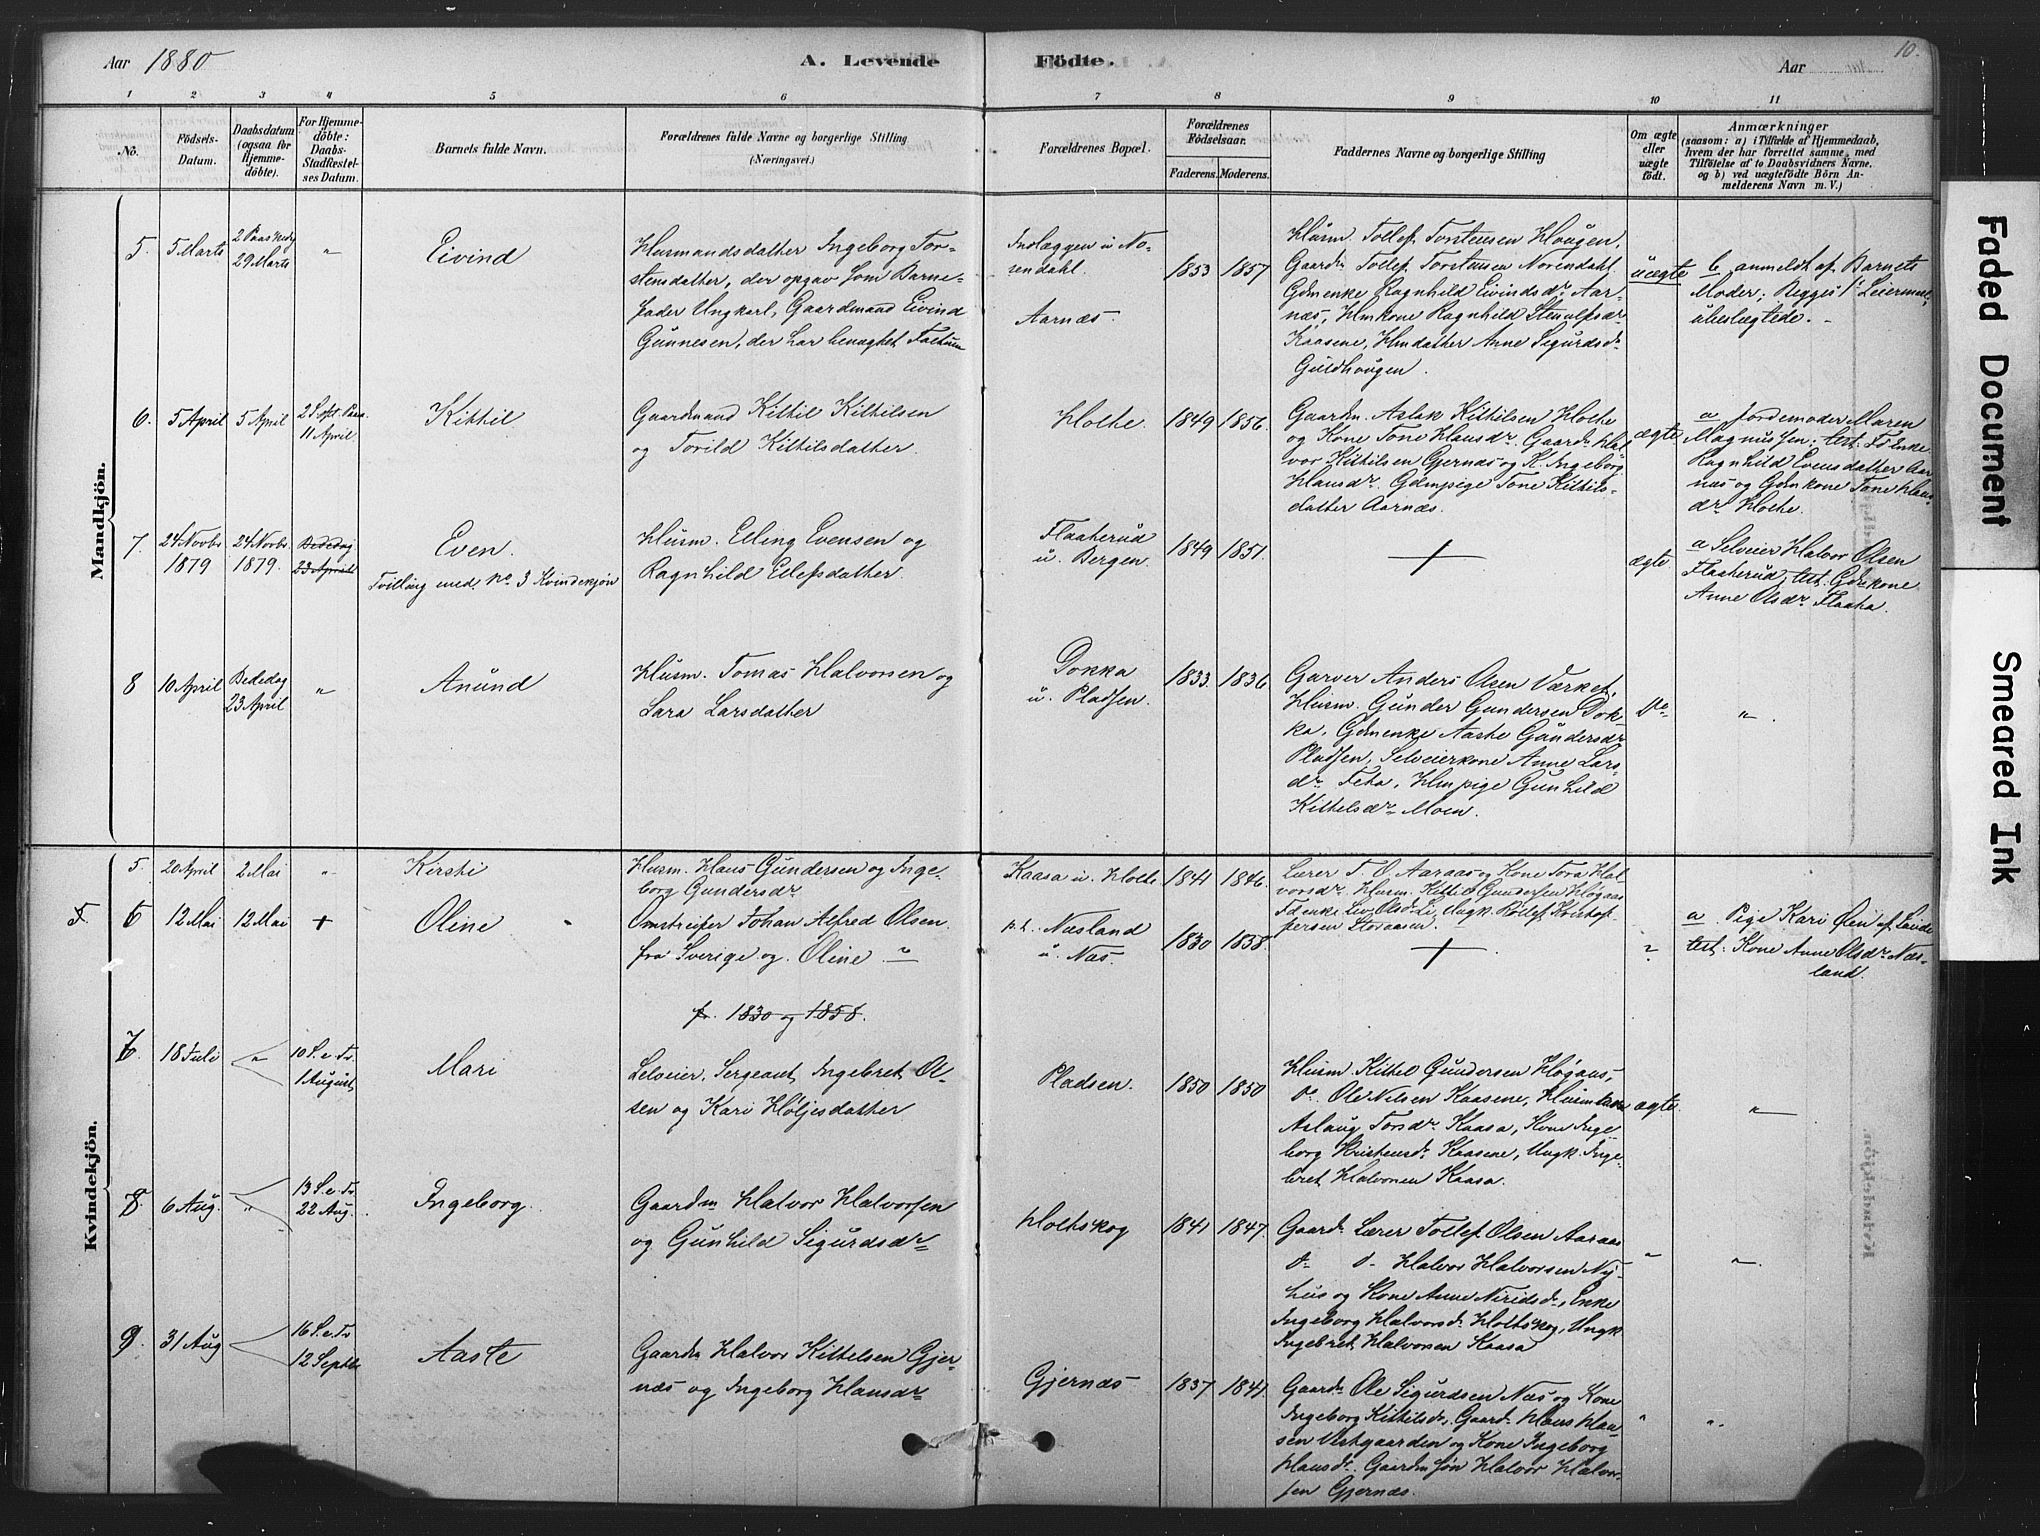 Aar 1880
A. Levende Födte.
Aar
10.
1 2 3 4 5 6 7 8 9 10 11
No.
Födsels-
Datum.
Daabsdatum
(ogsaa for
Hjemme-
döbte).
For Hjemme-
döbte:
Daabs-
Stadfæstel-
ses Datum.
Barnets fulde Navn.
Forældrenes fulde Navne og borgerlige Stilling
(Næringsvei.)
Forældrenes Bopæl.
Forældrenes
Födselsaar.
Faderens. Moderens.
Faddernes Navne og borgerlige Stilling
Om ægte
eller
uægte
födt.
Anmærkninger
(saasom: a) i Tilfælde af Hjemmedaab,
hvem der har forrettet samme, med
Tilföielse af to Daabsvidners Navne,
og b) ved uægtefödte Börn An-
melderens Navn m. V.)
Mandkjön.
5. 5 Marts
2 Paaskedg
29 Marts
"
Eivind
Husmandsdatter Ingeborg Tor-
stensdatter, der opgav som Barne-
fader Ungkarl, Gaardmand Eivind
Gunnesen, der har benægtet Factum
Indlæggen u. No-
sendahl.
Aarnæs.
1853 1857
Husm. Tollef Torstensen Hougen,
Gaardm. Tollef Torstensen Norendahl,
Gdmenke Ragnhild Eivindsdr Aar-
næs, Hmkone Ragnhild Stenulfsdr
Kaasene, Hmdatter Anne Sigurdsdr
Guldhougen.
uægte
b anmeldt af Barnets
Moder; Begges 1ste Leiermaal,
ubeslægtede. -
6. 5 April
5 April
2 S. eft. Paas.
11 April
Kittil
Gaardmand Kittil Kittilsen
og Torild Kittilsdatter.
Holte.
1849 1856
Gaardm. Aslak Kittilsen Holte
og Kone Tone Hansdr. Gaardm. Hal-
vor Kittilsen Gjernæs og K. Ingeborg
Hansdr. Gdmpige Tone Kittils-
datter Aarnæs.
ægte
a Jordemoder Maren
Magnussen; test: Fdenke
Ragnhild Evensdatter Aar-
næs og Gdmkone Tone Hans-
dr Holte.
7. 24 Novbr
1879
24 Novbr
1879.
Bededag
23 April
Even.
Tvilling med No 3 Kvindekjön
Husm. Elling Evensen og
Ragnhild Eilefsdatter.
Flaaterud
u. Bergen.
1849 1851.
+
ægte
a Selveier Halvor Olsen
Flaaterud, test. Gdmkone
Anne Olsdr Flaata.
8 10 April
Bededag
23 April
"
Anund
Husm. Tomas Halvorsen og
Sara Larsdatter
Dokka
u. Pladsen.
1833. 1836
Garver Anders Olsen Værket.
Husm. Gunder Gundersen Dok-
ka, Gdmenke Aaste Gundersdr
Pladsen, Selveierkone Anne Lars-
dr Feta, Hmpige Gunhild
Kittelsdr Moen.
Do
"
Kvindekjön.
5 20 April 2 Mai "
Kirsti
Husm. Hans Gundersen og Inge-
borg Gundersdr
Kaasa u. Holte
1841 1846.
Lærer T. O. Aaraas og Kone Tora Hal-
vorsdr. Husm. Kittel Gundersen Høgaas
Fdenke Liv Olsd. Li, Ungk. Rollef Kristof-
fersen Storaasen.
6 12 Mai 12 Mai +
Oline
Omstreifer Johan Alfred Olsen
fra Sverige og Oline "
fr. 1830 og 1858.
p.t. Næsland
u. Næs.
1830 1858.
+
"
a. Pige Kari Øien af Laide
test: Kone Anne Olsdr Næs-
land.
7. 18 Juli
"
10 S. e. Tr.
1 August
Mari
Selveier, Sergeant Ingebret Ol-
sen og Kari Høljesdatter
Pladsen.
1850 1850
Husm. Kittel Gundersen Høgaas,
do. Ole Nilsen Kaasene, Husmkone
Aslaug Torsdr. Kaasa, Kone Inge-
borg Kristensdr. Kaasene, Ungk. Inge-
bret Halvorsen Kaasa.
ægte.
"
8. 6 Aug.
"
13 S. e. Tr
22 Aug.
Ingeborg
Gaardm Halvor Halvorsen
og Gunhild Sigurdsdr
Holtskog
1841 1847.
Gaardm. Lærer Tollef Olsen Aaraas
do. do. Halvor Halvorsen Ny-
hus og Kone Anne Niridsdr, Enke
Ingeborg Halvorsdr. Holtskog, Ungk.
Ingebret Halvorsen Kaasa
"
"
9. 31 Aug
16 S. e. Tr
12 Septbr
Aaste
Gaardm Halvor Kittelsen Gjer-
næs og Ingeborg Hansdr
Gjernæs
1837 1841.
Gaardm Ole Sigurdsen Næs og Kone
Ingeborg Kittilsdr, Gaardm. Hans Han-
sen Vestgaarden og Kone Ingeborg
Hansdr. Gaardm søn Halvor Halvor-
sen Gjernæs.
"
"
Faded Document
Smeared Ink